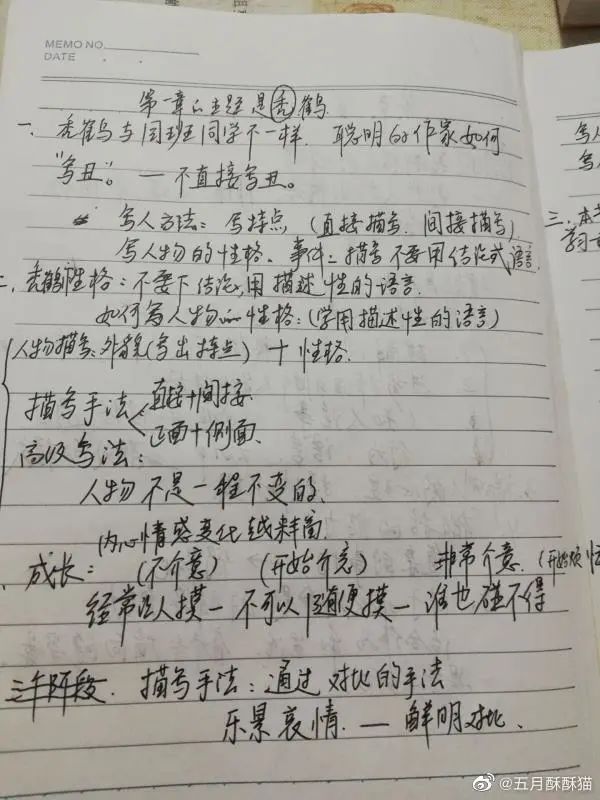 MEMO NO.
DATE
第一章的主题是秃鹤
一、秃鹤与同班同学不一样. 聪明的作家如何
"写丑"。—不直接写丑。
写人方法: 写特点 (直接描写. 间接描写)
写人物的性格、事件: 描写不要用结论式语言.
二、秃鹤性格: 不要下结论,用描述性的语言.
如何写人物的性格: (学用描述性的语言)
人物描写: 外貌(写出特点) + 性格.
描写手法 直接+间接.
正面+侧面.
高级写法:
人物不是一程不变的.
内心情感变化越来丰富
成长: (不介意) (开始介意) 非常介意. (开始烦
经常让人摸—不可以随便摸—谁也碰不得
三个阶段. 描写手法: 通过对比的手法
乐景哀情.—鲜明对比.
写人
写人
三、本
学习
@五月酥酥猫